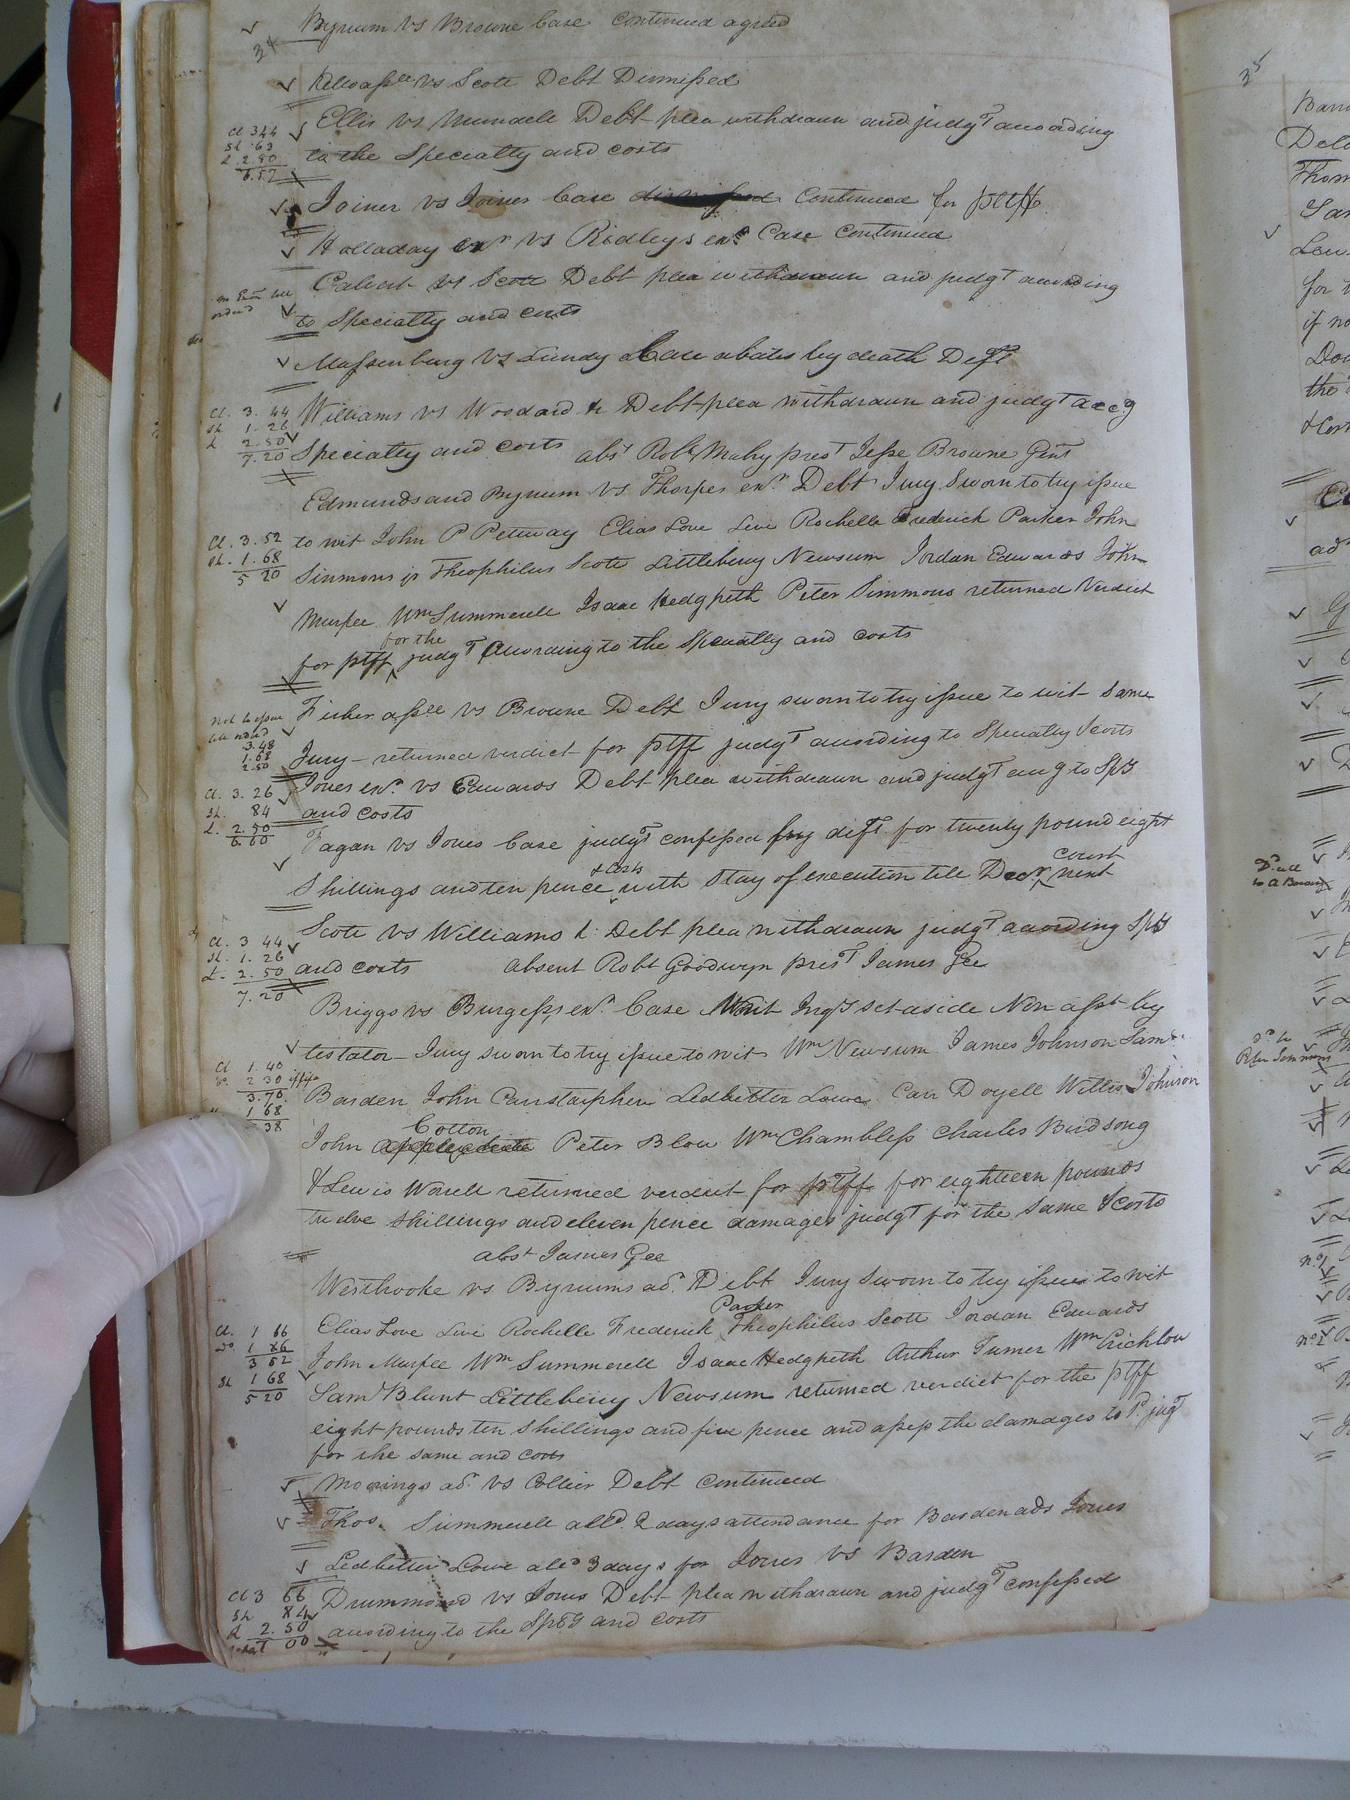 Bynum vs Browne Case Continued agreed
34
vs Scott Debt Dismissed
Ellis vs Debt plea withdrawn and judgt according
Cl 3.44
Sh .63
L 2.50
6.57
to the Specialty and costs
Joiner vs Joiner Case dismissed Continued for pltff
Holladay exr vs Ridleys exr Case Continued
Calvert vs Scott Debt plea withdrawn and judgt according
to Specialty and costs
Massenburg vs Lundy Case abates by death Deft
Cl. 3.44
Sh 1.26
L 2.50
7.20
Williams vs Woodard Debt plea withdrawn and judgt accg
Specialty and costs abst Robt Mabry prest Jesse Browne Gent
Edmunds and Bynum vs Thorpes exr. Debt Jury Sworn to try issue
Cl. 3.52
Sh. 1.68
5 20
to wit John P Peteway Elias Love Levi Rochelle Frederick Parker John
Simmons jr Theophilus Scott Littlebury Newsum Jordan Edwards John
Murfee Wm Summerell Isaac Hedgpeth Peter Simmons returned Verdict
for the
for ptff judgt According to the Specialty and costs
Fisher assee vs Browne Debt Jury sworn to try issue to wit Same
3.48
1.68
2.50
Jury returned verdict for ptff judgt according to Specialty & costs
Cl. 3.26
Sh. 84
L. 2.50
6.60
Jones exr. vs Edwards Debt plea withdrawn and judgt accg to Spty
and costs
Fagan vs Jones Case judgt confessed by deft for twenty pound eight
& costs
court
Shillings and ten pence with Stay of execution till Decr next
Cl. 3 44
Sh. 1.26
L. 2.50
7.20
Scott vs Williams Debt plea withdrawn judgt according Spty
and costs absent Robt Goodwyn prest James Gee
Briggs vs Burgess exr. Case Writ Inqy set aside Non asst by
testator Jury sworn to try issue to wit Wm Newsum James Johnson Saml
Cl 1.40
2 30
3.70
1 68
38
Barden John Carstarphen Ledbetter Lowe Carr Doyell Willis Johnson
Cotton
John Applewhite Peter Blow Wm Chambless Charles Birdsong
& Lewis Worell returned verdict for ptff for eighteen pounds
twelve shillings and eleven pence damages judgt for the Same & costs
abst James Gee
Westbrooke vs Bynums ad. Debt Jury Sworn to try issue to wit
Parker
Cl. 1 66
do 1 86
3 52
Sh 1 68
5 20
Elias Love Levi Rochelle Frederick Theophilus Scott Jordan Edwards
John Murfee Wm Summerell Isaac Hedgpeth Arthur Turner Wm Crichlow
Saml Blunt Littlebery Newsum returned verdict for the ptff
eight pounds ten shillings and five pence and assess the damages to 1d. jugt
for the same and costs
Morings ad. vs Collier Debt Continued
Thos. Summerell alld. 2 days attendance for Barden ads Jones
Ledbetter Lowe ald 3 days for Jones vs Barden
Cl 3 66
Sh 84
L 2.50
7 00
Drummond vs Jones Debt plea withdrawn and judgt confessed
according to the Spty and costs
35